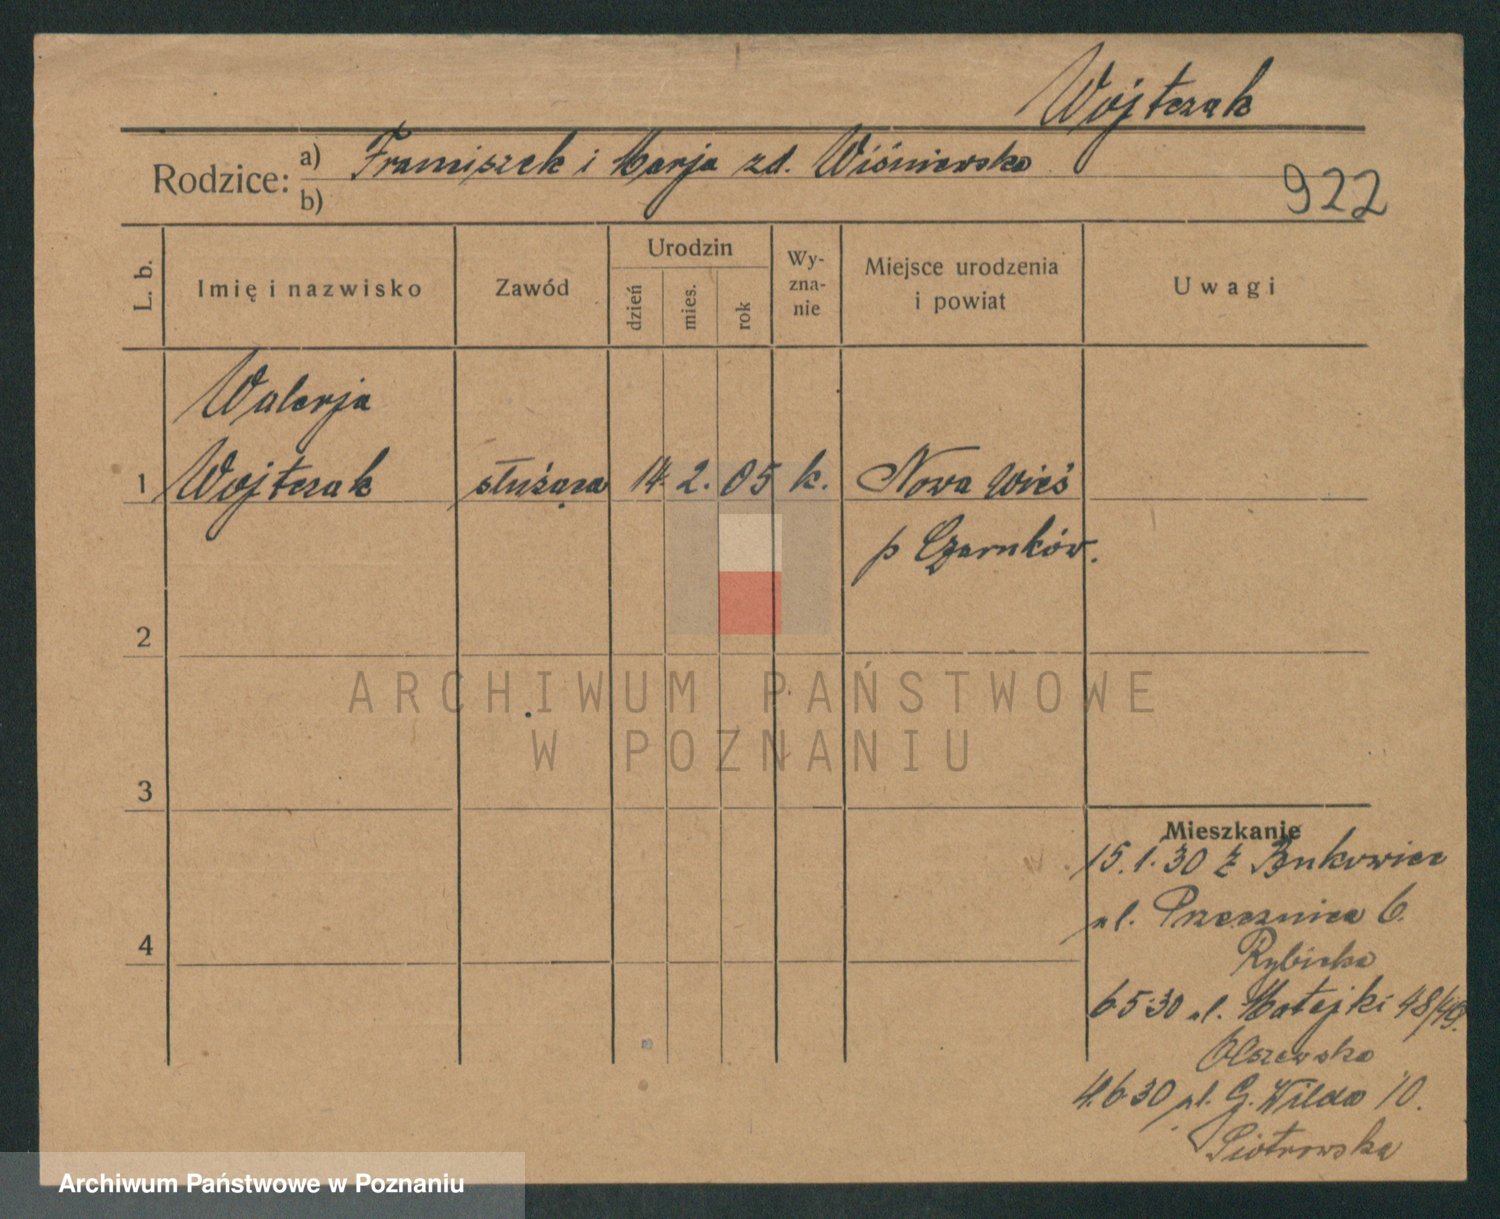 Wojtczak
Rodzice: a) Franciszek i Marja zd. Wiśniewska
b)
922
L. b.
Imię i nazwisko
Zawód
Urodzin
dzień
mies.
rok
Wy-
zna-
nie
Miejsce urodzenia
i powiat
Uwagi
Walerja
1 Wojtczak służąca 14. 2. 05 k. Nowa Wieś
p Czarnków.
2
3
4
ARCHIWUM PAŃSTWOWE
W POZNANIU
Mieszkanie
15.1.30 z Bukowiec
ul. Przecznica 6.
Rybicka
6 5 30 ul. Matejki 48/49.
Olszewska
4.6 30 ul. G. Wilda 10.
Piotrowska
Archiwum Państwowe w Poznaniu